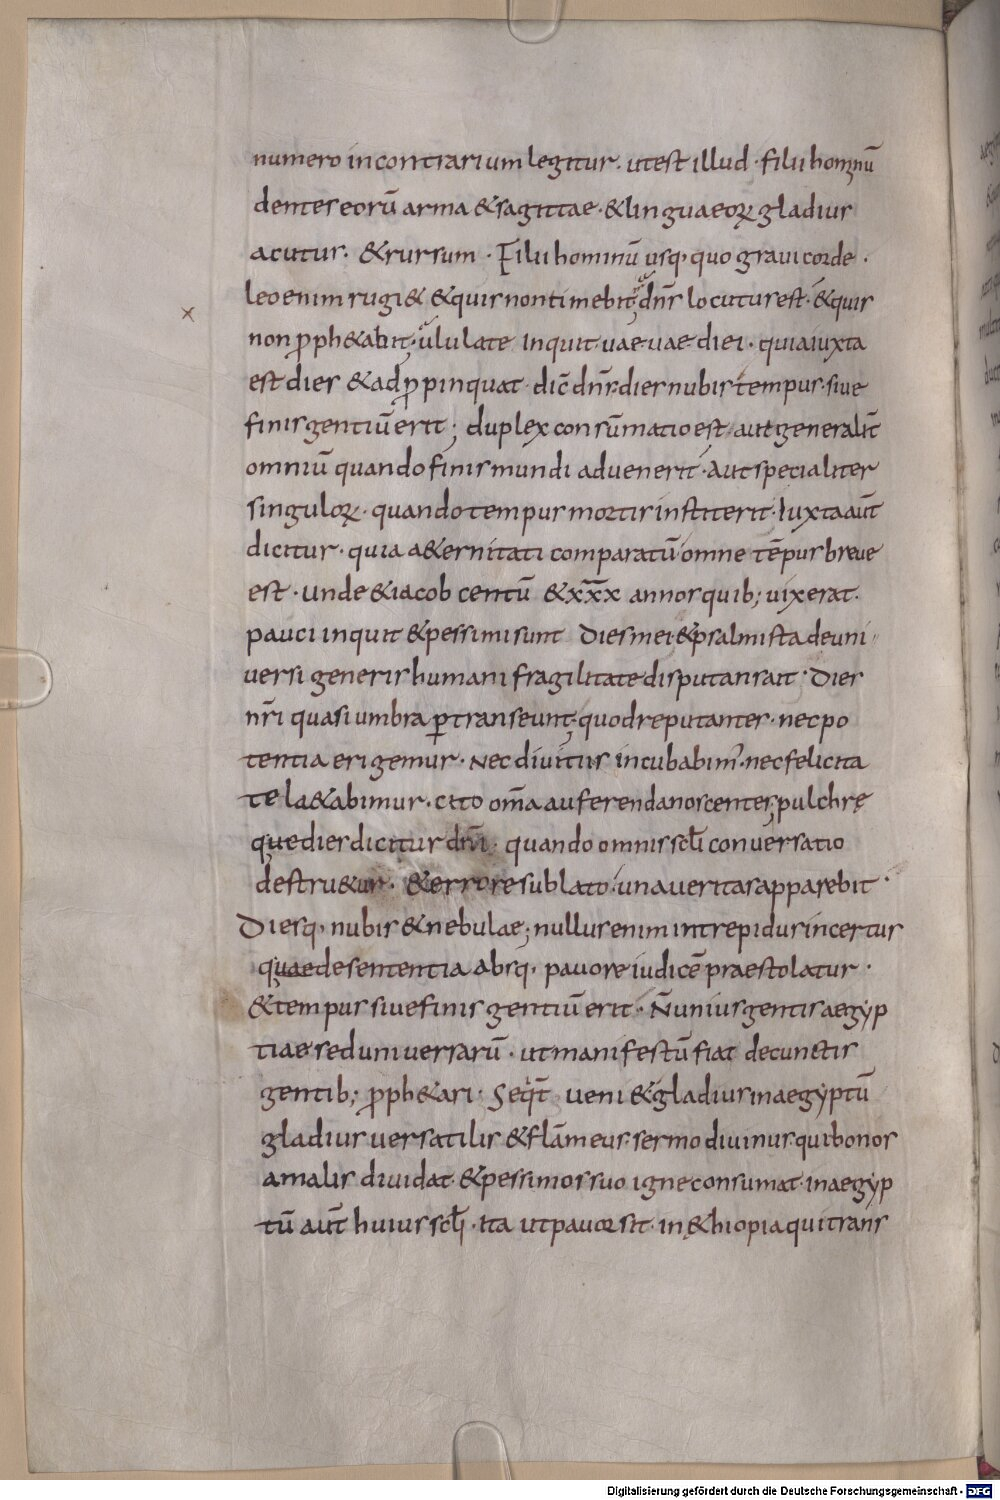 numero incontrarium legitur. ut est illud. filii hominū
dentes eorū arma & sagittae. & lingua eorꝝ gladius
acutus. & rursum. Filii hominū usq, quo gravi corde.
leo enim rugi& & quis non timebit; dn̄s locutus est. & quis
non ꝓph&abit; ululate inquit uae uae diei. quia iuxta
est dies & adꝓpinquat dic̄ dn̄s. dies nubis tempus. sive
finis gentiū erit; duplex consūmatio est. aut generalit̄
omniū quando finis mundi advenerit. Aut specialiter
singulorꝝ. quando tempus mortis institerit. Iuxta aūt
dicitur. quia a&ernitati comparatū omne tēpus breve
est. Unde & iacob centū & xxx̄x annos quib; vixerat.
pauci inquit & pessimi sunt dies mei & psalmista de uni
versi generis humani fragilitate disputans ait. Dies
nr̄i quasi umbra ꝑtranseunt; quod reputantes. nec po
tentia erigemur. Nec divitiis incubabim'. nec felicita
te l&abimur. cito om̄a auferenda noscentes; pulchrę
que dies dicitur dn̄i. quando omnis scl̄i conversatio
destru&ur. & errore sublato. una veritas apparebit.
Diesq, nubis & nebulae; nullus enim intrepidus incertus
quae de sententia absq, pavore iudicē praestolatur.
& tempus sive finis gentiū erit. N̄ unius gentis aegyp
tiae sed universarū. ut manifestū fiat de cunctis
gentib; ꝓph&ari. Seqt̄ veni& gladius in aegyptū
gladius versatilis & flām̄eus. sermo divinus qui bonos
a malis dividat & pessimos suo igne consumat. in aegyp
tū aūt huius scl̄i. Ita ut pavor sit in &hiopia qui trans
x
Digitalisierung gefördert durch die Deutsche Forschungsgemeinschaft - DFG